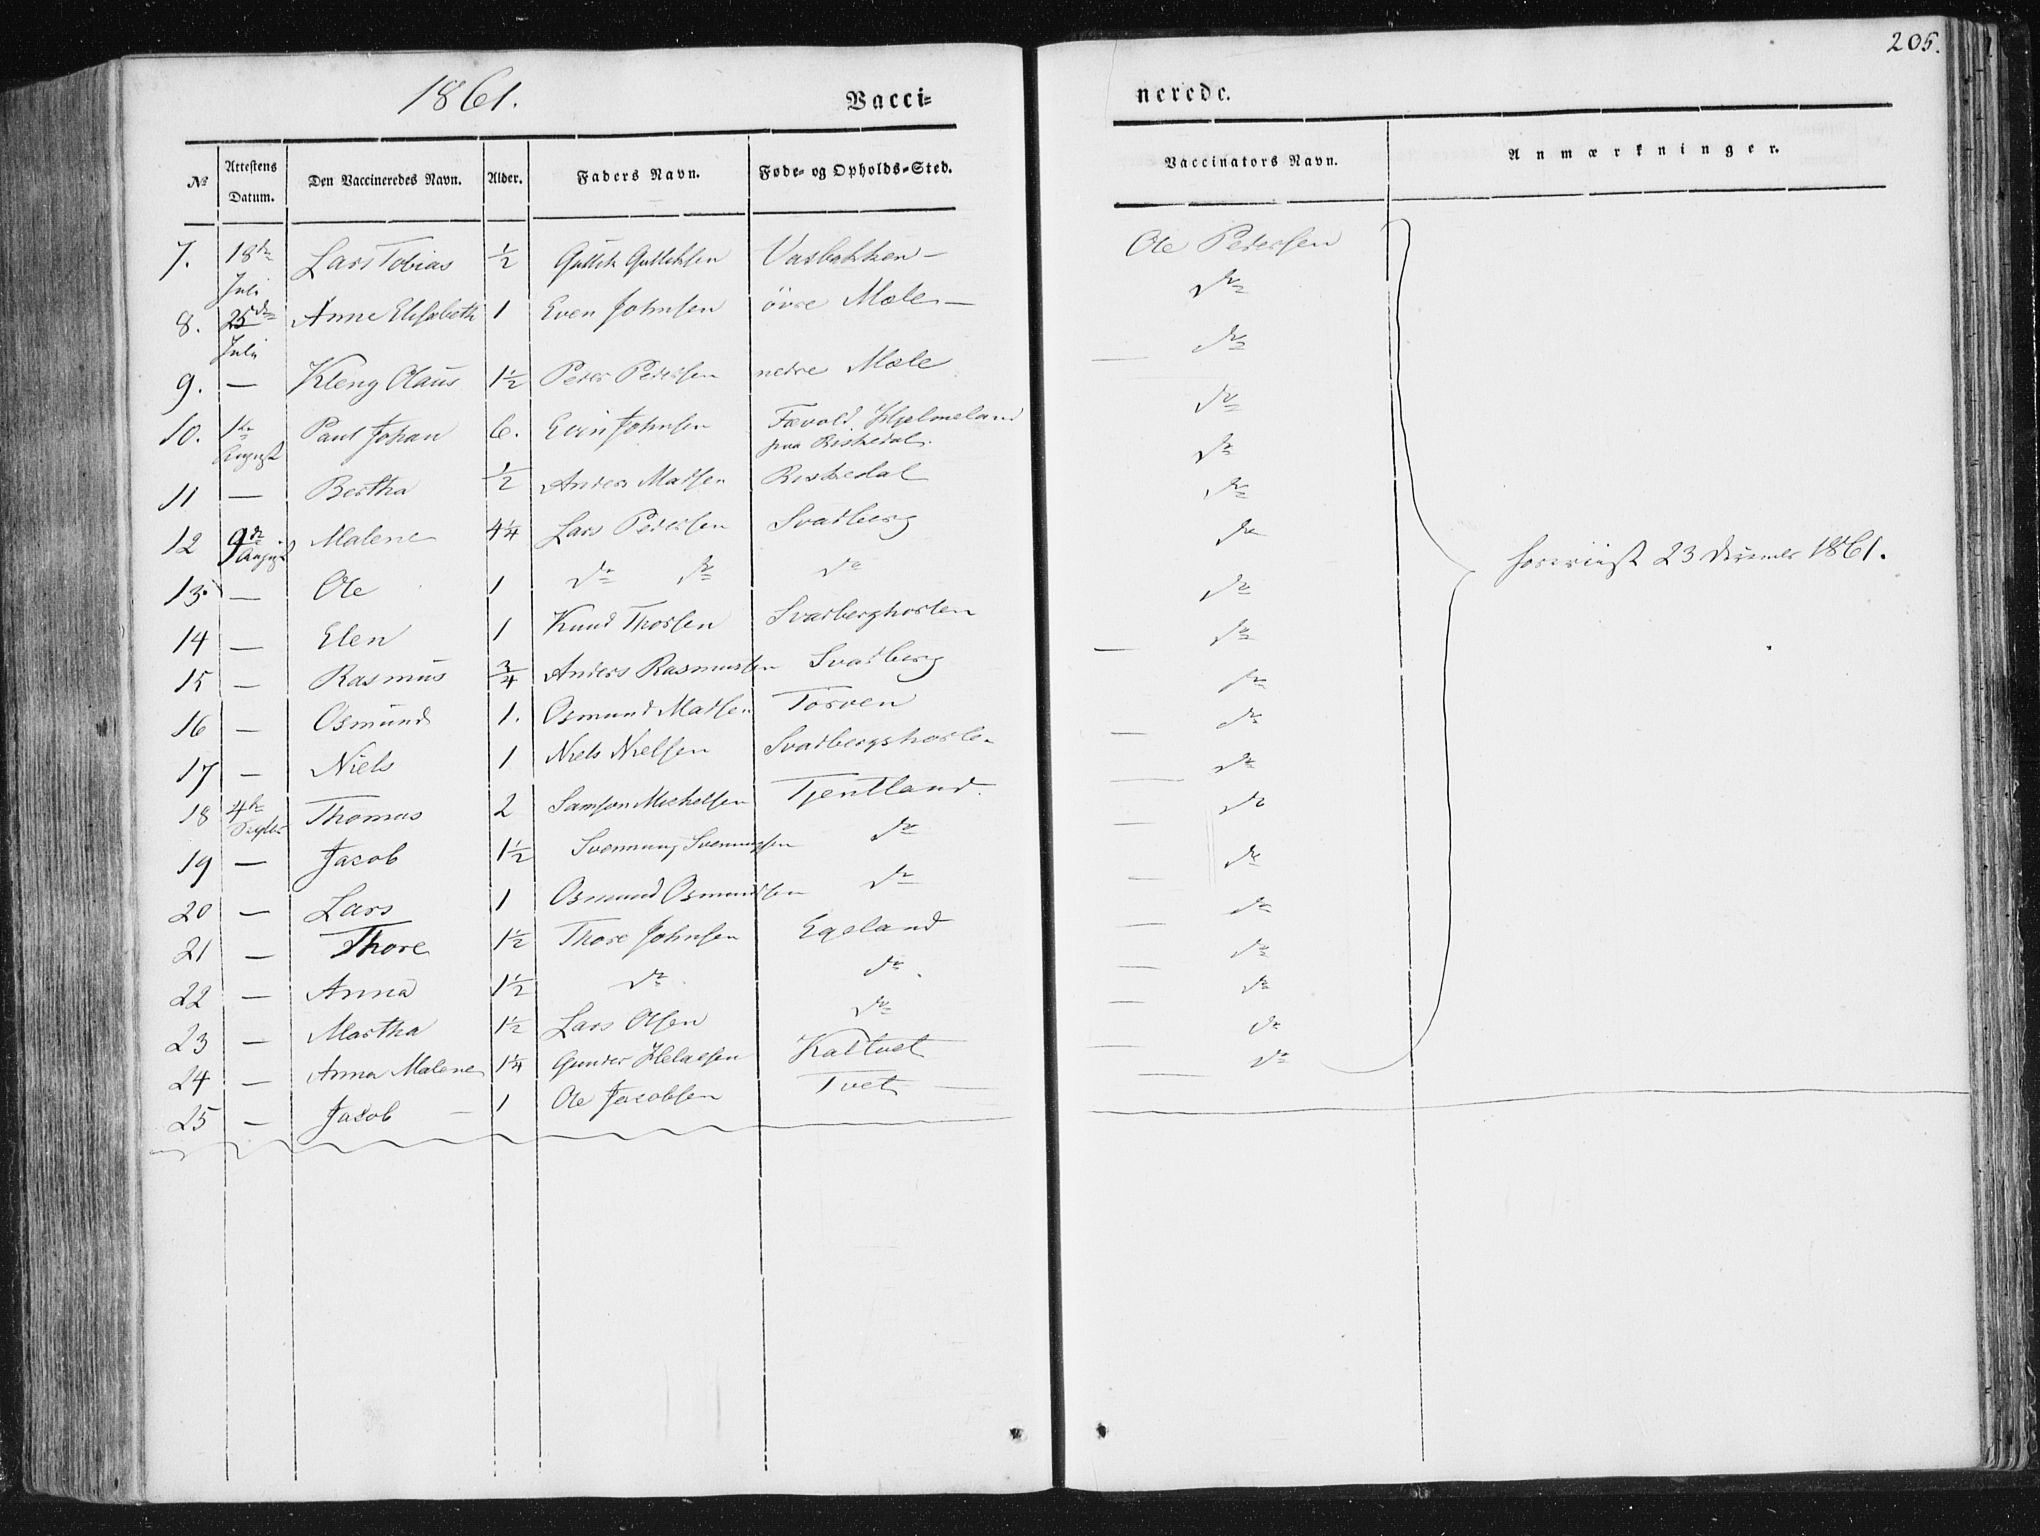 205.
1861.
Vacci=
nerede.
No
Attestens Datum.
Den Vaccineredes Navn.
Alder.
Faders Navn.
Føde- og Opholds-Sted.
Vaccinators Navn.
Anmærkninger.
7. 18de Juli Lars Tobias 1/2 Gullik Gulliksen Vasbakken - Ole Pedersen
8. 25de Juli Anne Elisabeth 1 Even Johnsen övre Mæle - do
9. - Kleng Olaus 1 1/2 Peder Pedersen nedre Mæle do
10. 1te August Paul Johan 6. Even Johnsen Hjelmeland paa Riskedal. do
11 - Bertha 1/2 Anders Madsen Riskedal do
12 9de August Malene 4 1/4 Lars Pedersen Svadberg do
13. - Ole 1 do do do do
14 - Elen 1 Knud Thorsen Svadberg do
15 - Rasmus 3/4 Anders Rasmussen Svadberg do
16 - Osmund 1. Osmund Madsen Torven do
17 - Niels 1 Niels Nielsen do
18 4de Septbr Thomas 2 Samson Michelsen Tjentland. do
19 - Jacob 1 1/2 Svennung Svennungsen do do
20 - Lars 1 Osmund Osmundsen do do
21 - Thore 1 1/2 Thore Johnsen Egeland do
22 - Anna 1 1/2 do do do
23 - Martha 1 1/2 Lars Olsen do do
24 - Anna Malene 1 1/4 Gunder Kaltvet do
25 - Jacob - 1 Ole Jacobsen Tvet do
23 1861.